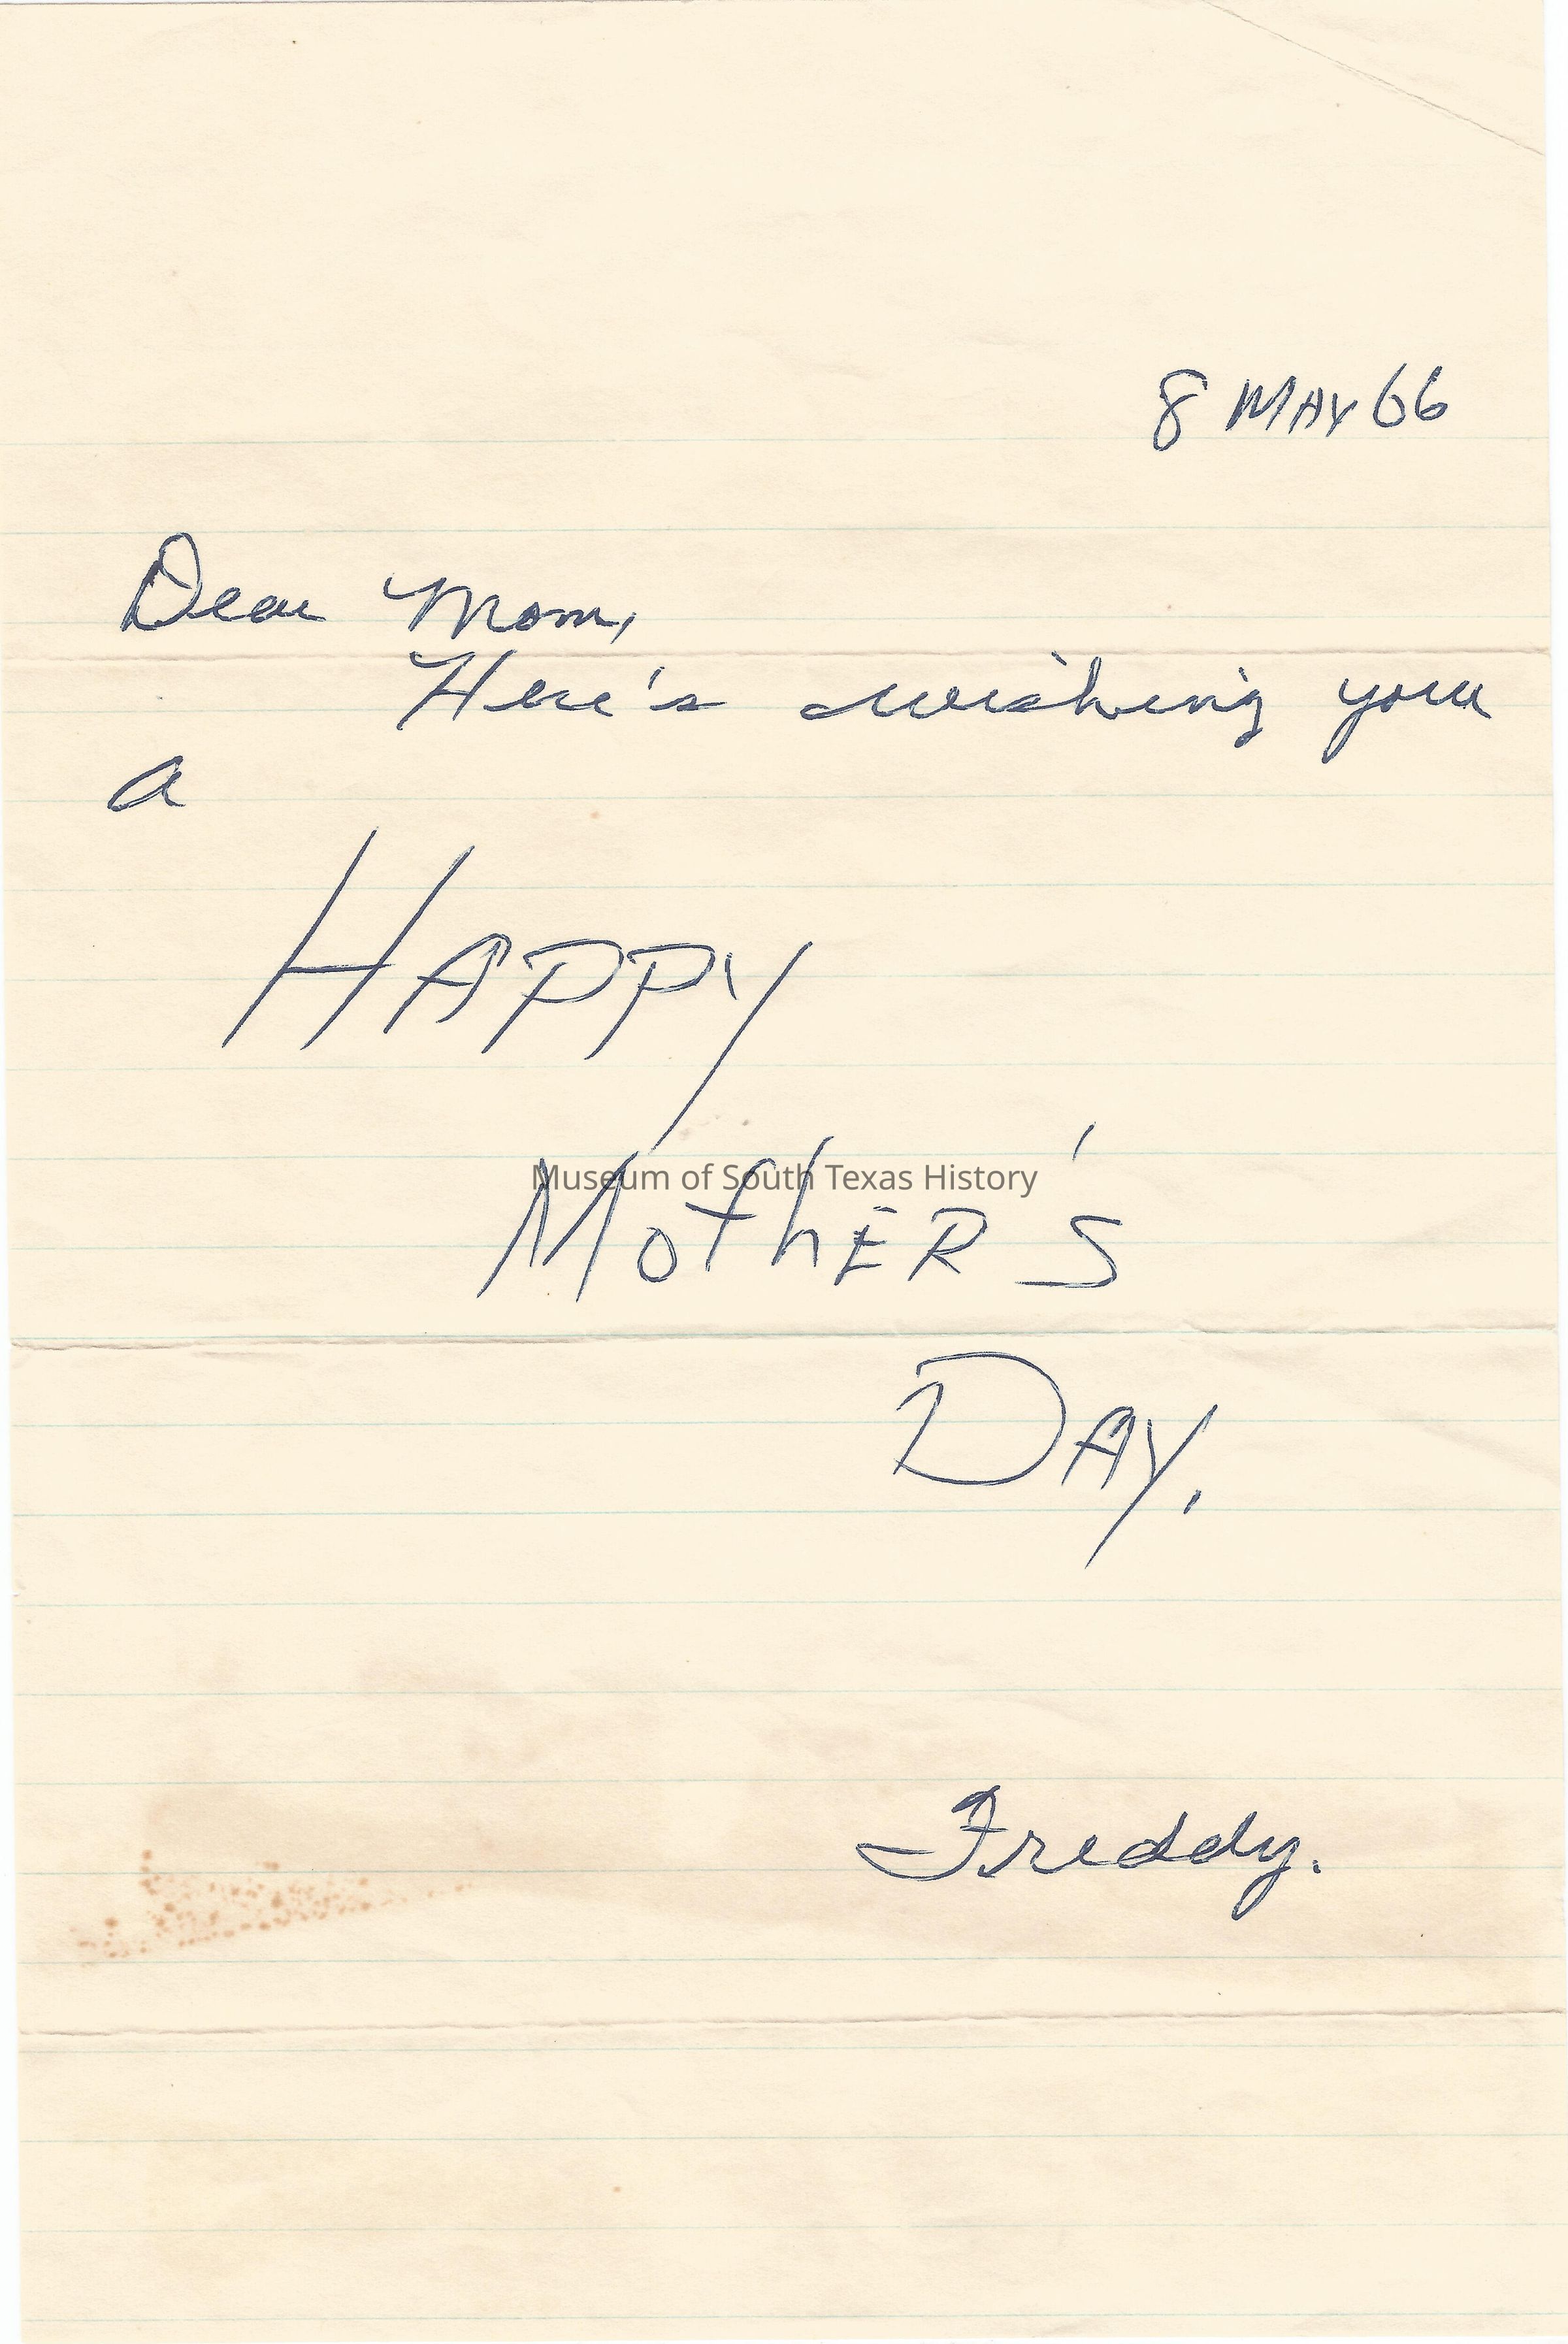 8 MAY 66
Dear Mom,
Here's wishing you
a
HAPPY
MothER'S
Museum of South Texas History
DAY.
Freddy.